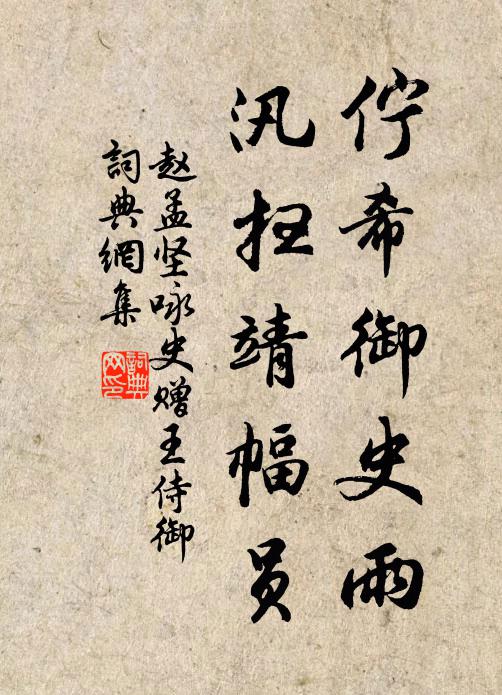 佇希御史雨
汎扫靖幅员
赵孟坚咏史赠王侍御
詞典網集
詞典网印